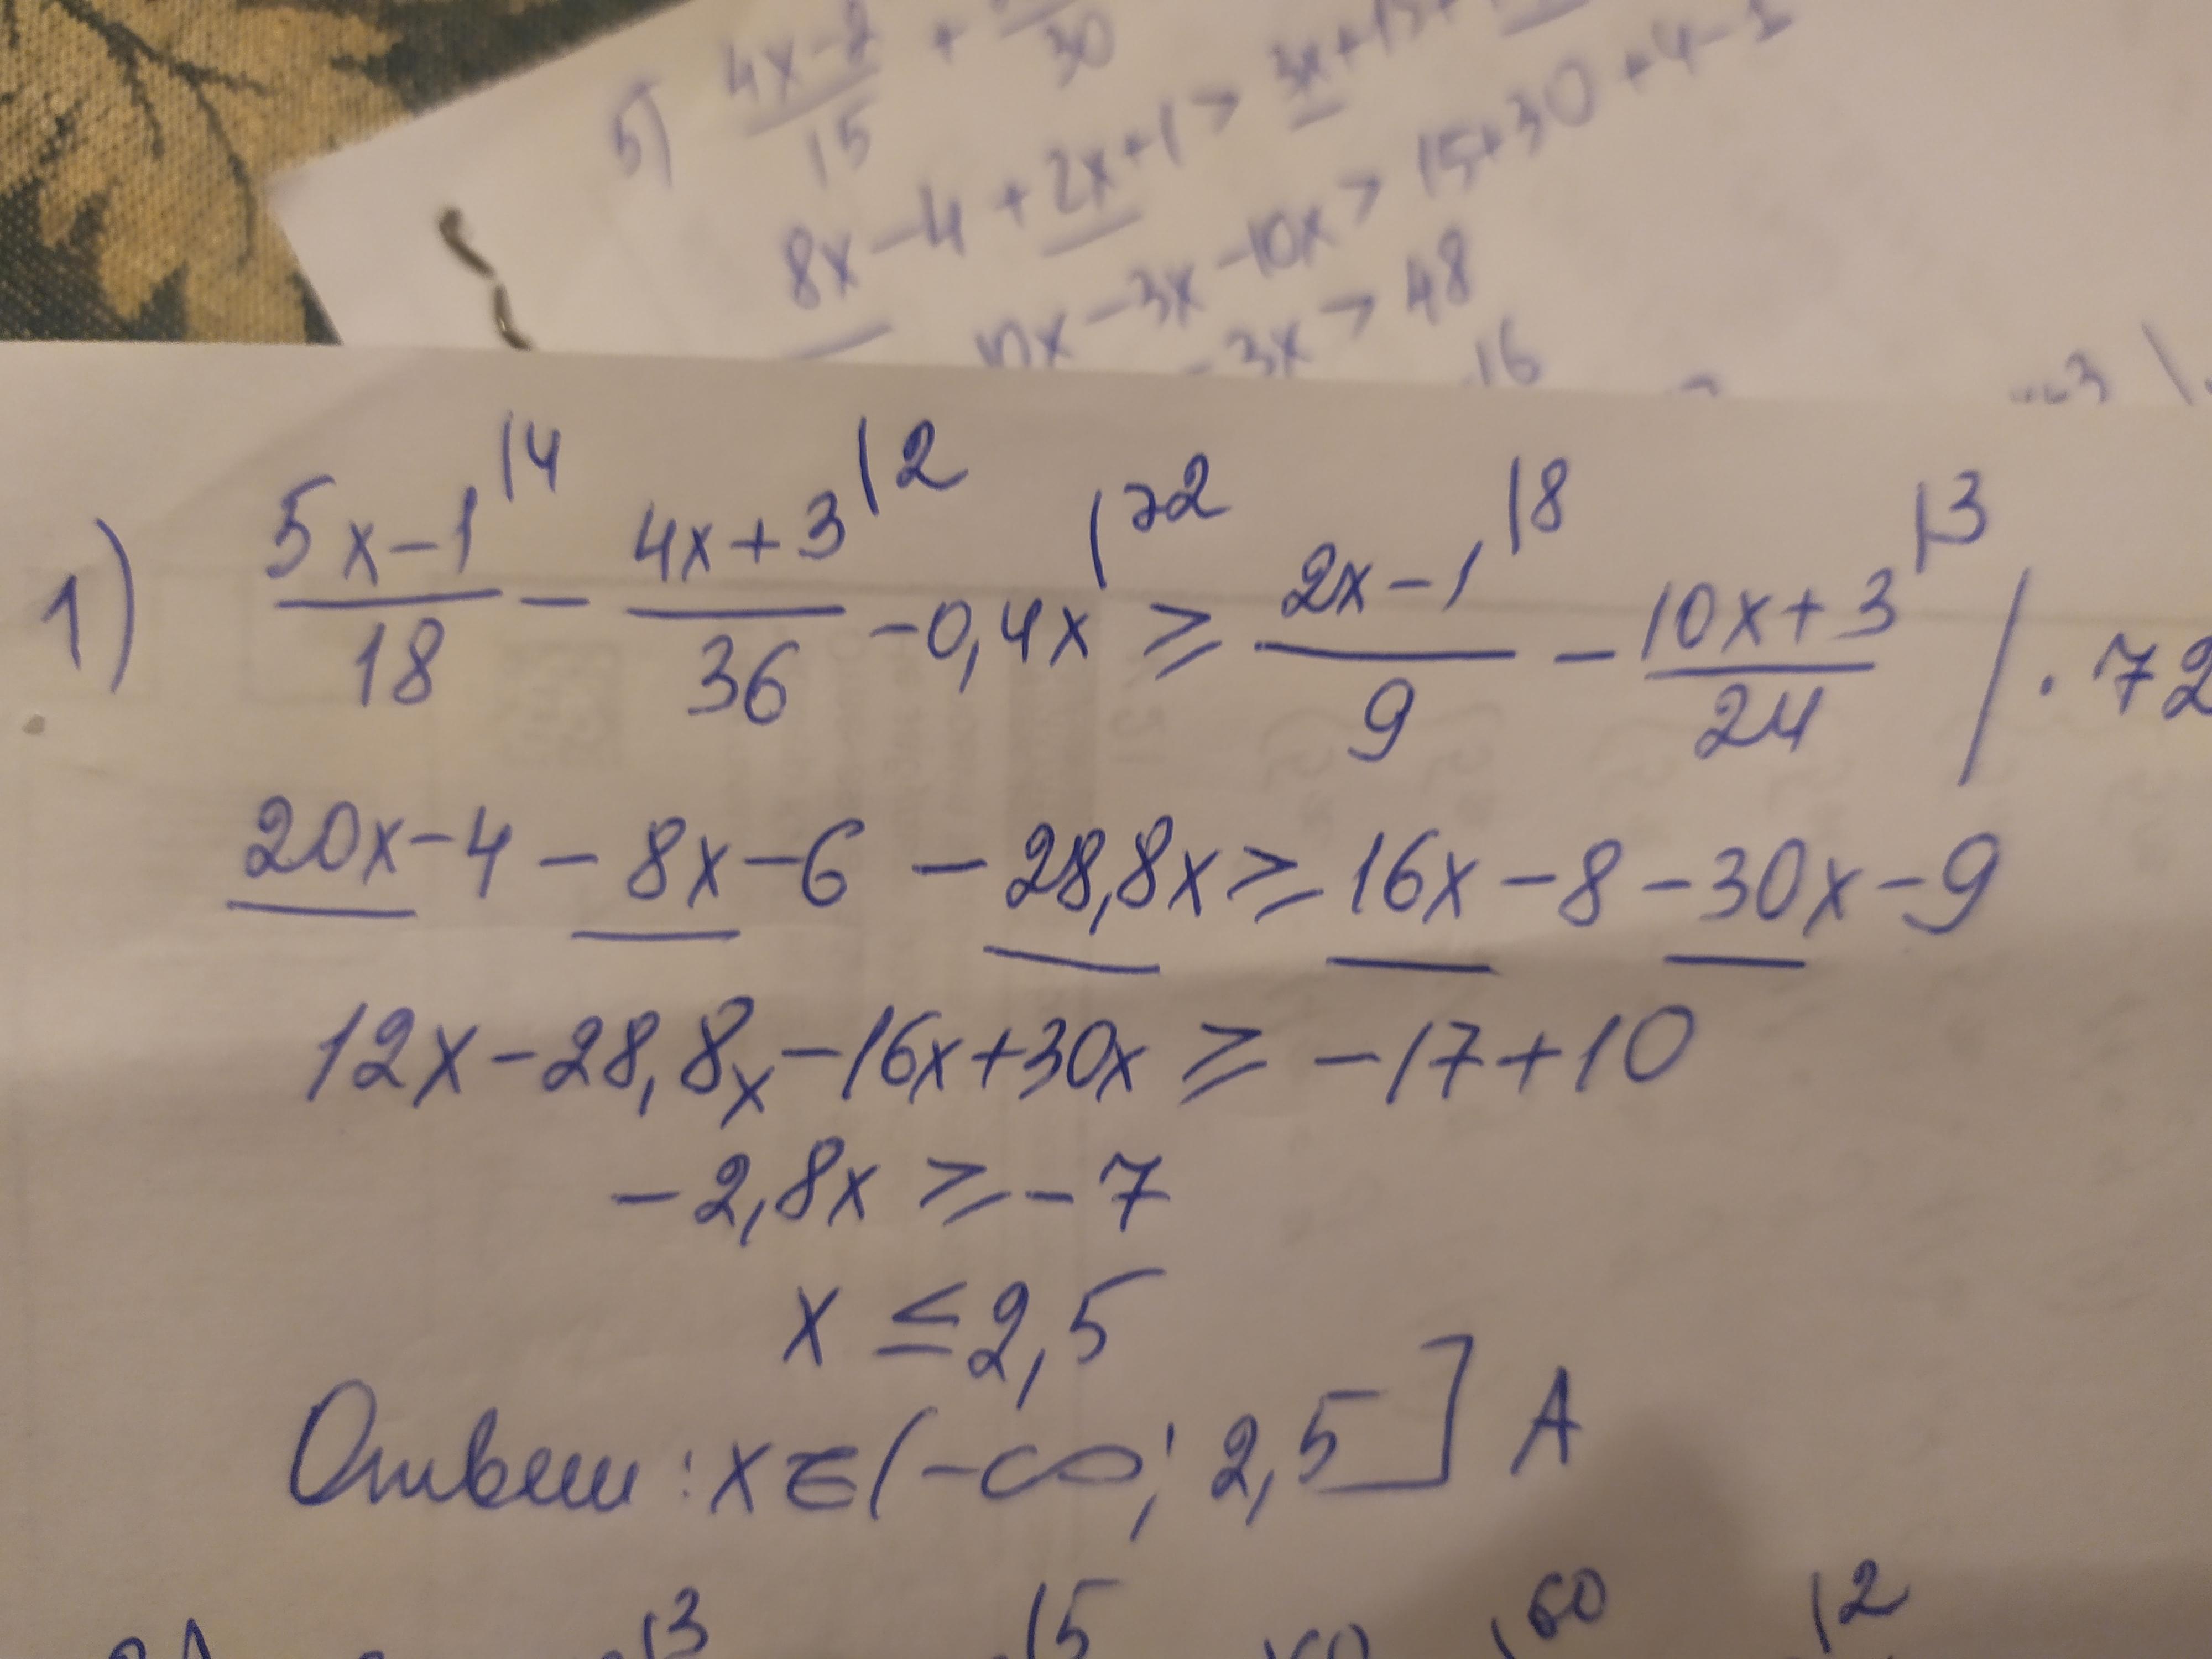 5) 4x-2/15 + /30
8x-4+2x+1> 3x+15+
10x-3x-10x>15+30+4-1
-3x>48
16
1) 5x-1/18 |4 - 4x+3/36 |2 -0,4x |72 ≥ 2x-1/9 |8 - 10x+3/24 |3 / · 72
20x-4 - 8x-6 - 28,8x ≥ 16x-8-30x-9
12x-28,8x-16x+30x ≥ -17+10
-2,8x ≥ -7
x ≤ 2,5
Ответ: x∈(-∞; 2,5] A
|3 |5 |60 |2